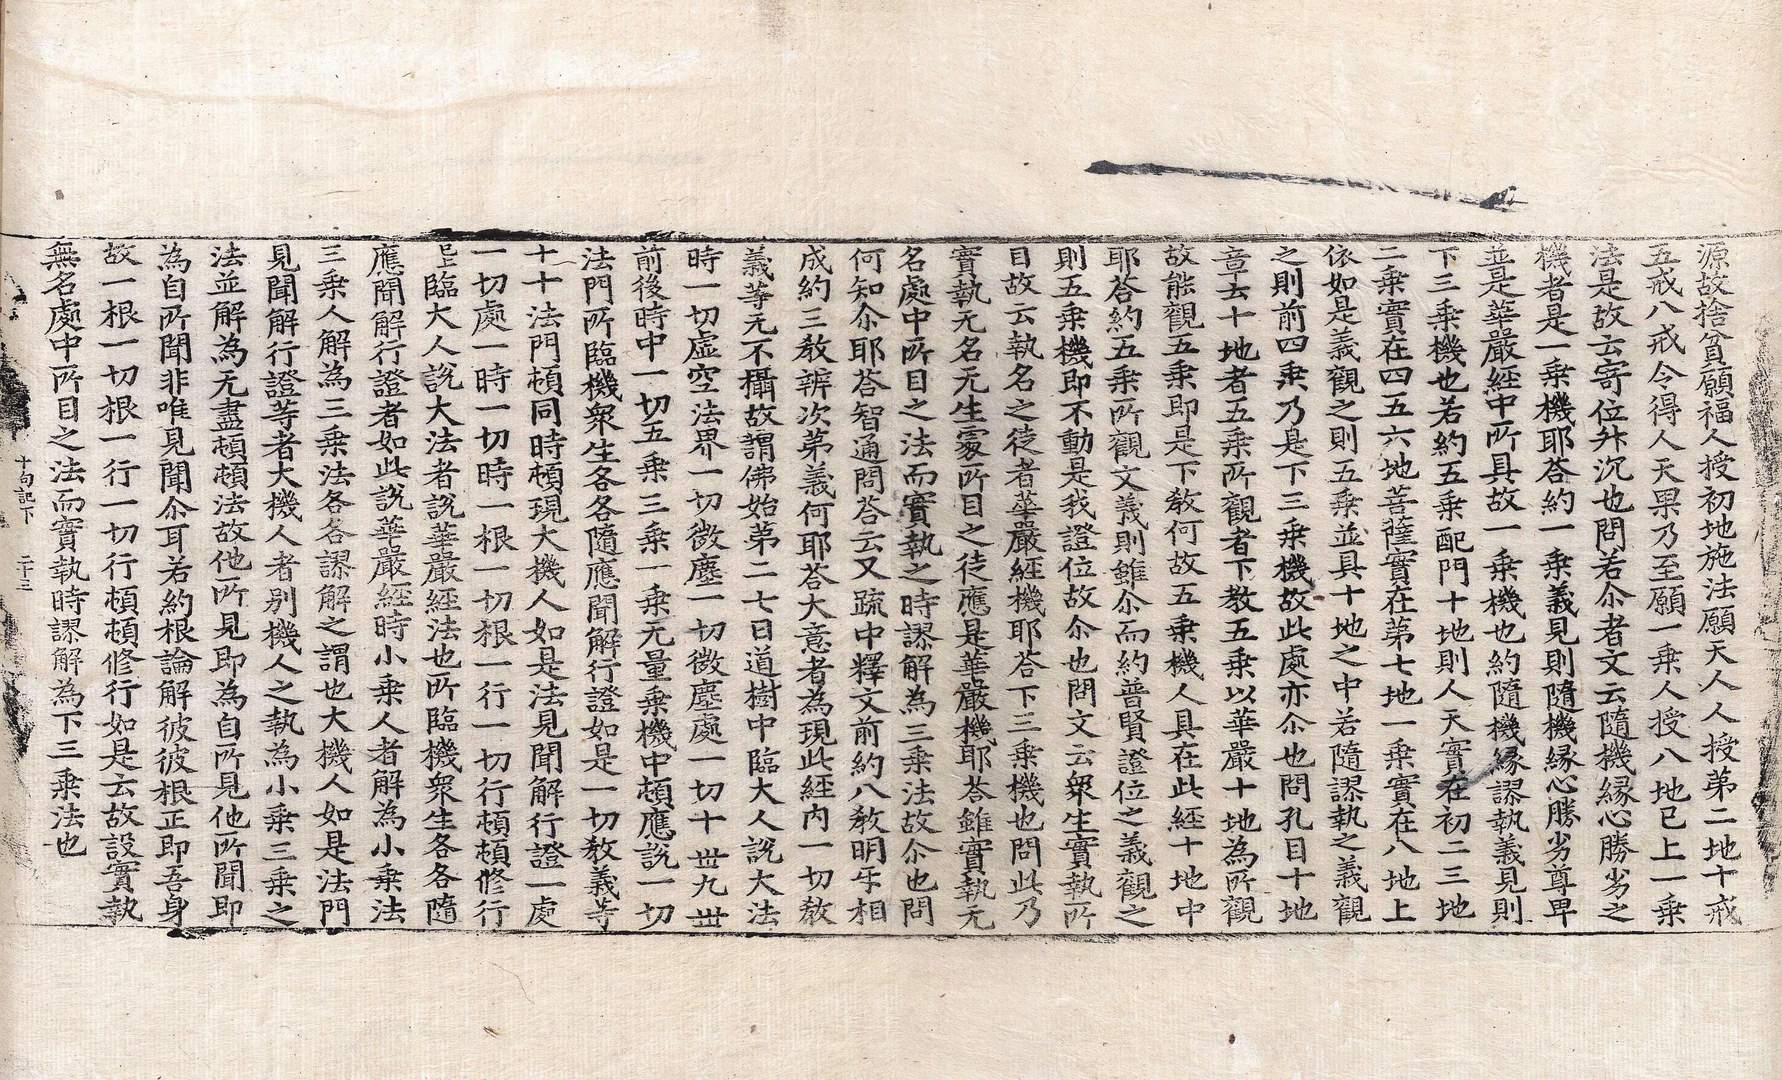 源故捨貧願福人授初地施法願天人人授第二地十戒
五戒八戒令得人天果乃至願一乘人授八地已上一乘
法是故云寄位升沉也問若尒者文云隨機緣心勝劣之
機者是一乘機耶荅約一乘義見則隨機緣心勝劣尊卑
並是華嚴經中所具故一乘機也約隨機緣謬執義見則
下三乘機也若約五乘配門十地則人天實在初二三地
二乘實在四五六地菩薩實在第七地一乘實在八地上
依如是義觀之則五乘並具十地之中若隨謬執之義觀
之則前四乘乃是下三乘機故此處亦尒也問孔目十地
章云十地者五乘所觀者下教五乘以華嚴十地為所觀
故能觀五乘即是下教何故五乘機人具在此經十地中
耶荅約五乘所觀文義則雖尒而約普賢證位之義觀之
則五乘機即不動是我證位故尒也問文云衆生實執所
目故云執名之徒者華嚴經機耶荅下三乘機也問此乃
實執无名无生家所目之徒應是華嚴機耶荅雖實執无
名處中所目之法而實執之時謬解為三乘法故尒也問
何知尒耶荅智通問荅云又疏中釋文前約八教明乍相
成約三教辨次第義何耶荅大意者為現此經內一切教
義等无不攝故謂佛始第二七日道樹中臨大人說大法
時一切虛空法界一切微塵一切微塵處一切十世九世
前後時中一切五乘三乘一乘无量乘機中頓應說一切
法門所臨機衆生各各隨應聞解行證如是一切教義等
十十法門頓同時頓現大機人如是法見聞解行證一處
一切處一時一切時一根一切根一行一切行頓頓修行
是臨大人說大法者說華嚴經法也所臨機衆生各各隨
應聞解行證者如此說華嚴經時小乘人者解為小乘法
三乘人解為三乘法各各謬解之謂也大機人如是法門
見聞解行證等者大機人者別機人之執為小乘三乘之
法並解為无盡頓頓法故他所見即為自所見他所聞即
為自所聞非唯見聞尒耳若約根論解彼彼根正即吾身
故一根一切根一行一切行頓頓修行如是云故設實執
無名處中所目之法而實執時謬解為下三乘法也
十句記下 二十三